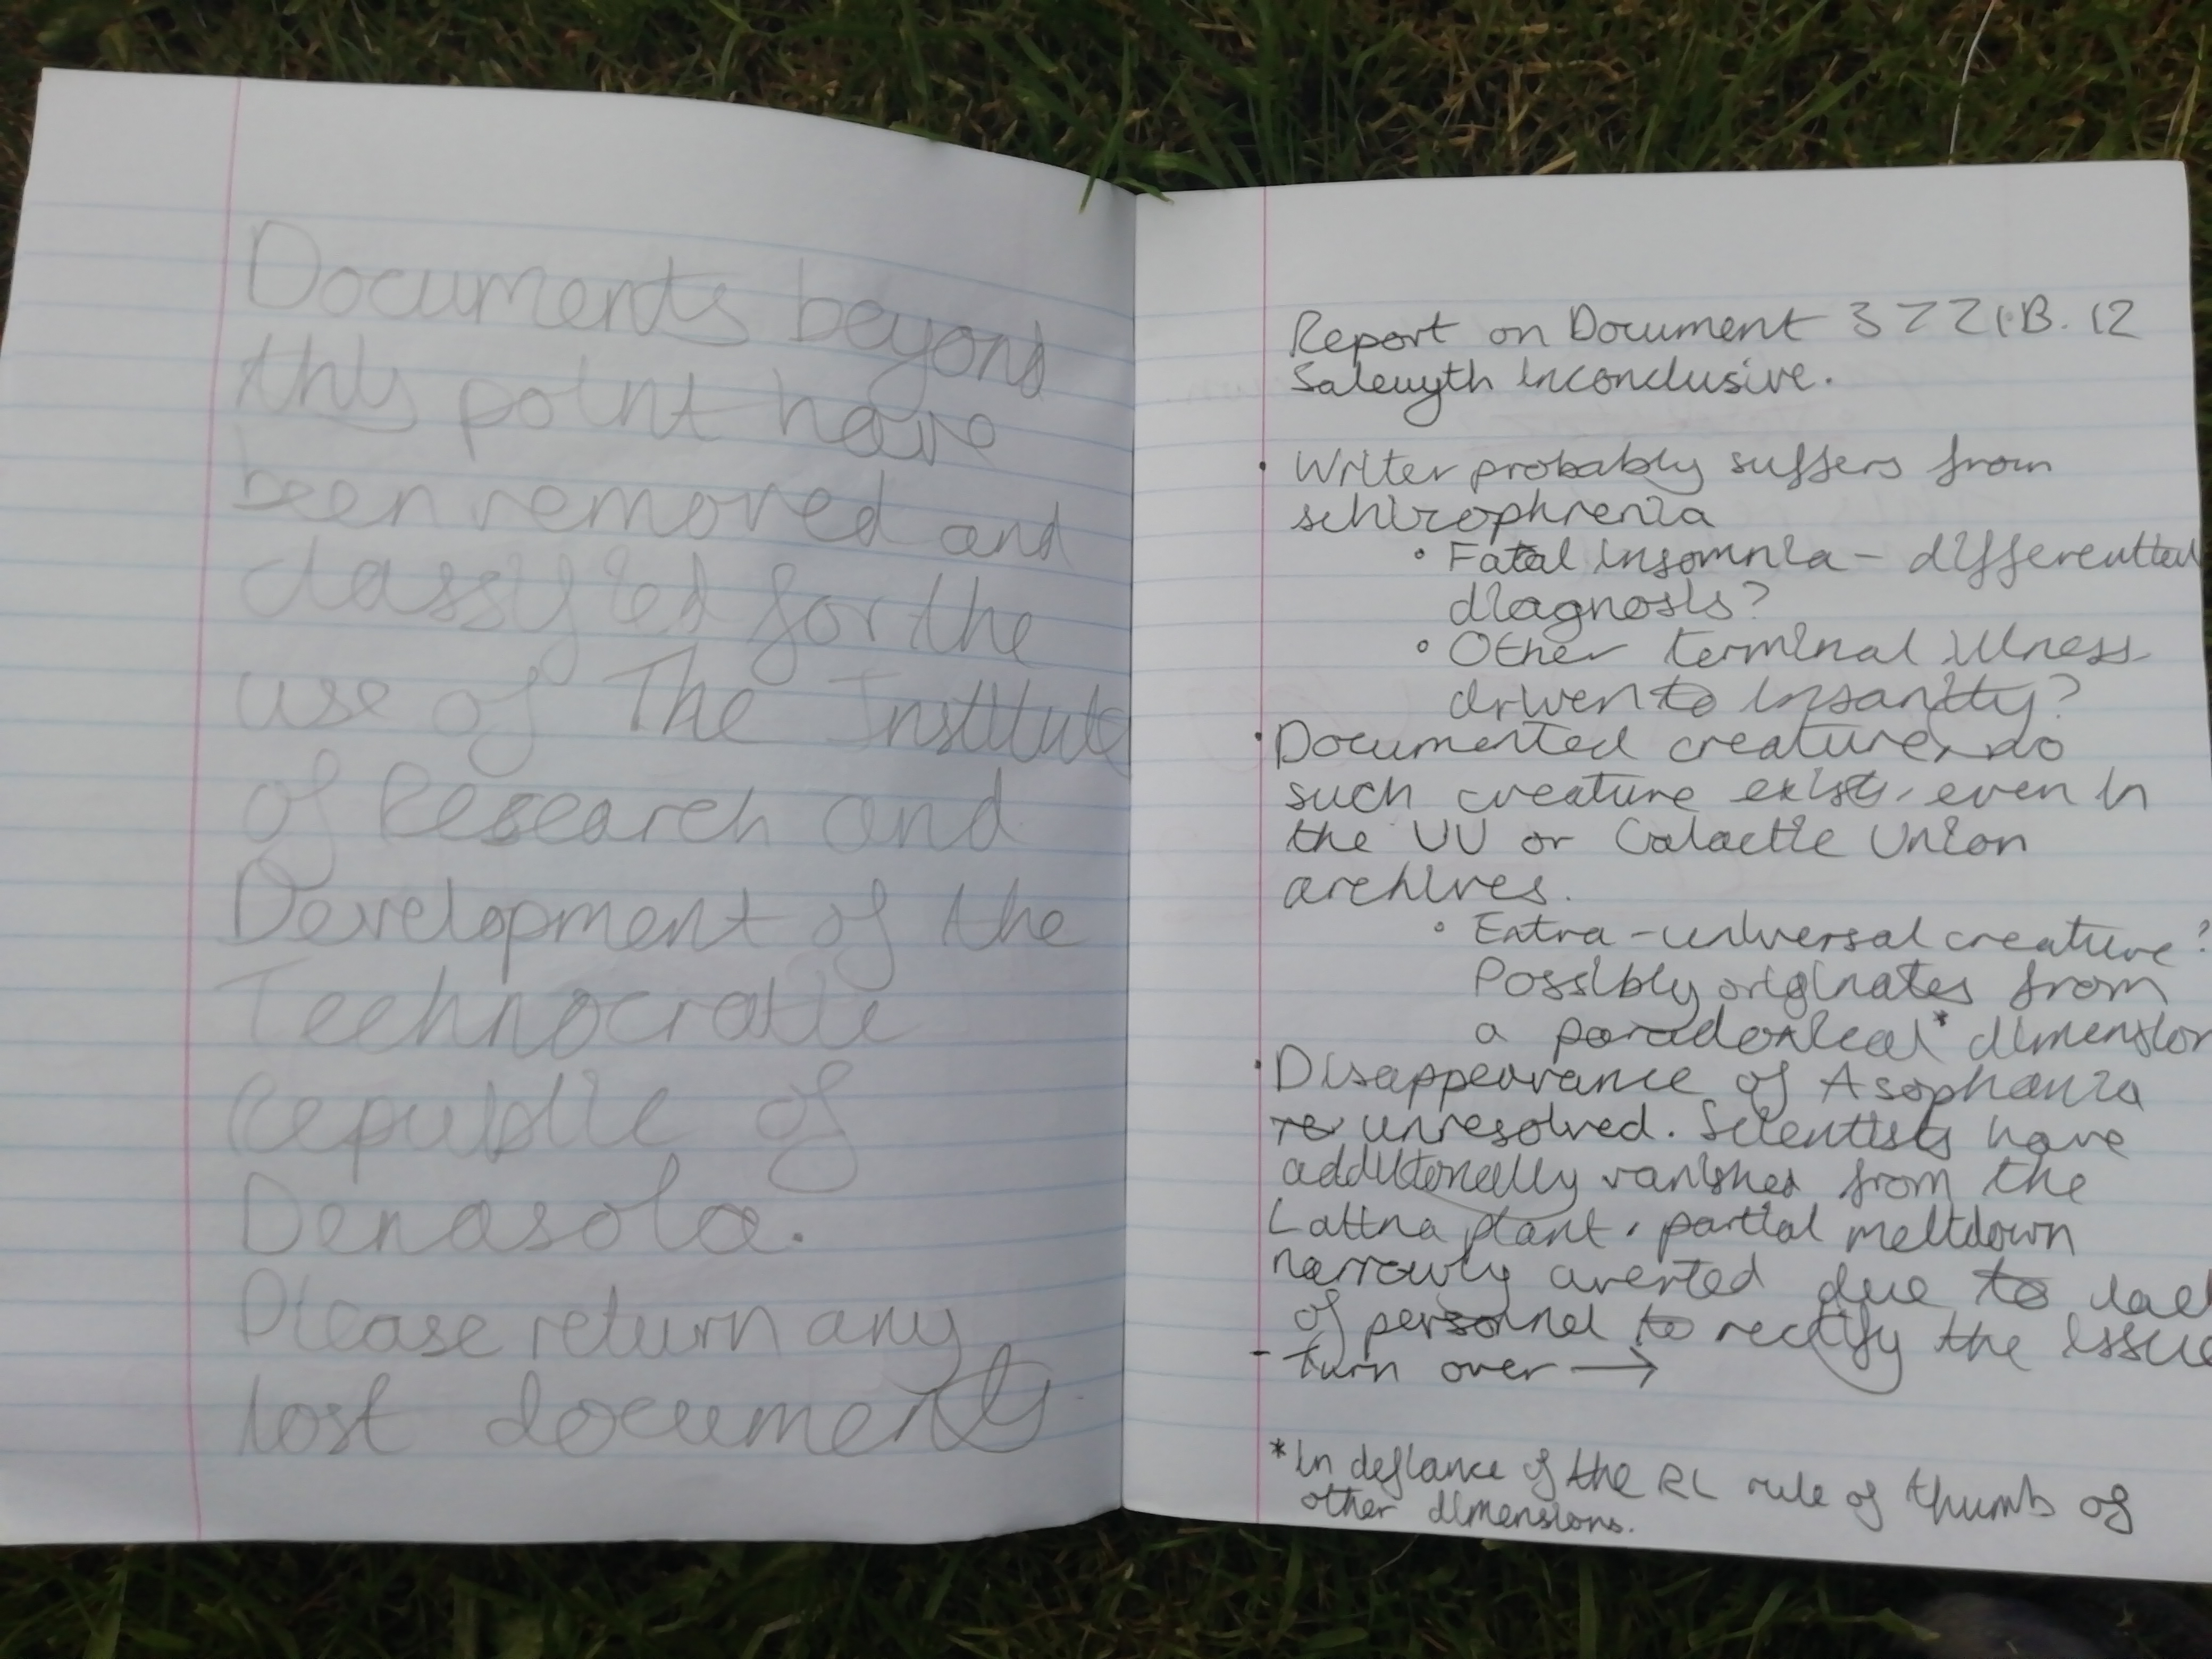 Documents beyond
this point have
been removed and
classified for the
use of The Institute
of Research and
Development of the
Technocratic
Republic of
Denasola.
Please return any
lost documents
Report on Document
inconclusive.
• Writer probably suffers from
schizophrenia
• Fatal insomnia - differential
diagnosis?
• Other terminal illness
driven to insanity?
• Documented creature, no
such creature exists, even in
the UU or Galactic Union
archives.
• Extra-universal creature?
Possibly originates from
a paradoxical* dimension
• Disappearance of
unresolved. Scientists have
additionally vanished from the
plant, partial meltdown
narrowly averted due to lack
of personnel to rectify the issue
- turn over →
*In defiance of the RL rule of thumb of
other dimensions.